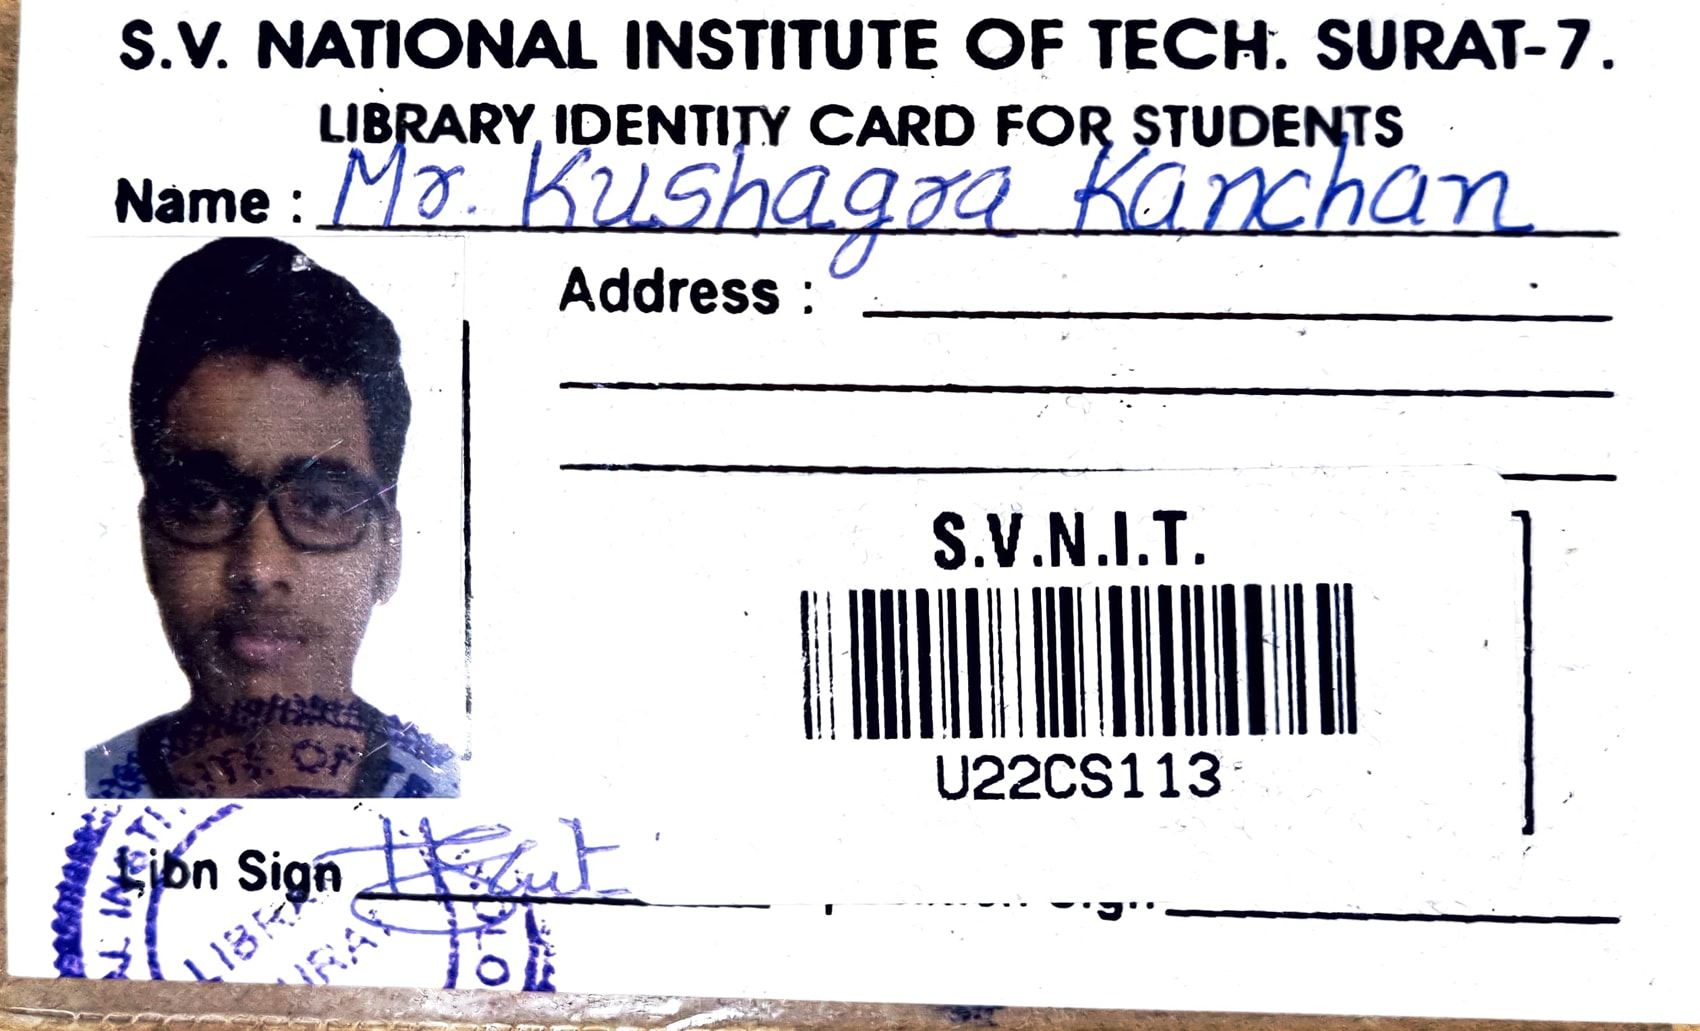 S.V. NATIONAL INSTITUTE OF TECH. SURAT-7.
LIBRARY IDENTITY CARD FOR STUDENTS
Name : Mr. Kushagra Kanchan
Address :
S.V.N.I.T.
U22CS113
Libn Sign
Sign
LIBRA
URAT